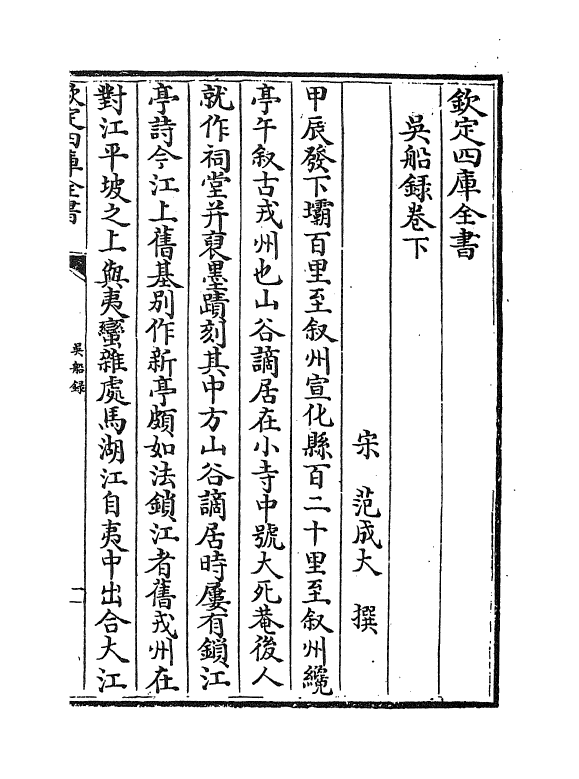 欽定四庫全書
吳船録卷下
宋　范成大　撰
甲辰發下壩百里至叙州宣化縣百二十里至叙州纜
亭午叙古戎州也山谷謫居在小寺中號大死菴後人
就作祠堂并裒墨蹟刻其中方山谷謫居時屢有鎖江
亭詩今江上舊基别作新亭頗如法鎖江者舊戎州在
對江平坡之上與夷蠻雜處馬湖江自夷中出合大江
欽定四庫全書
吳船録
一